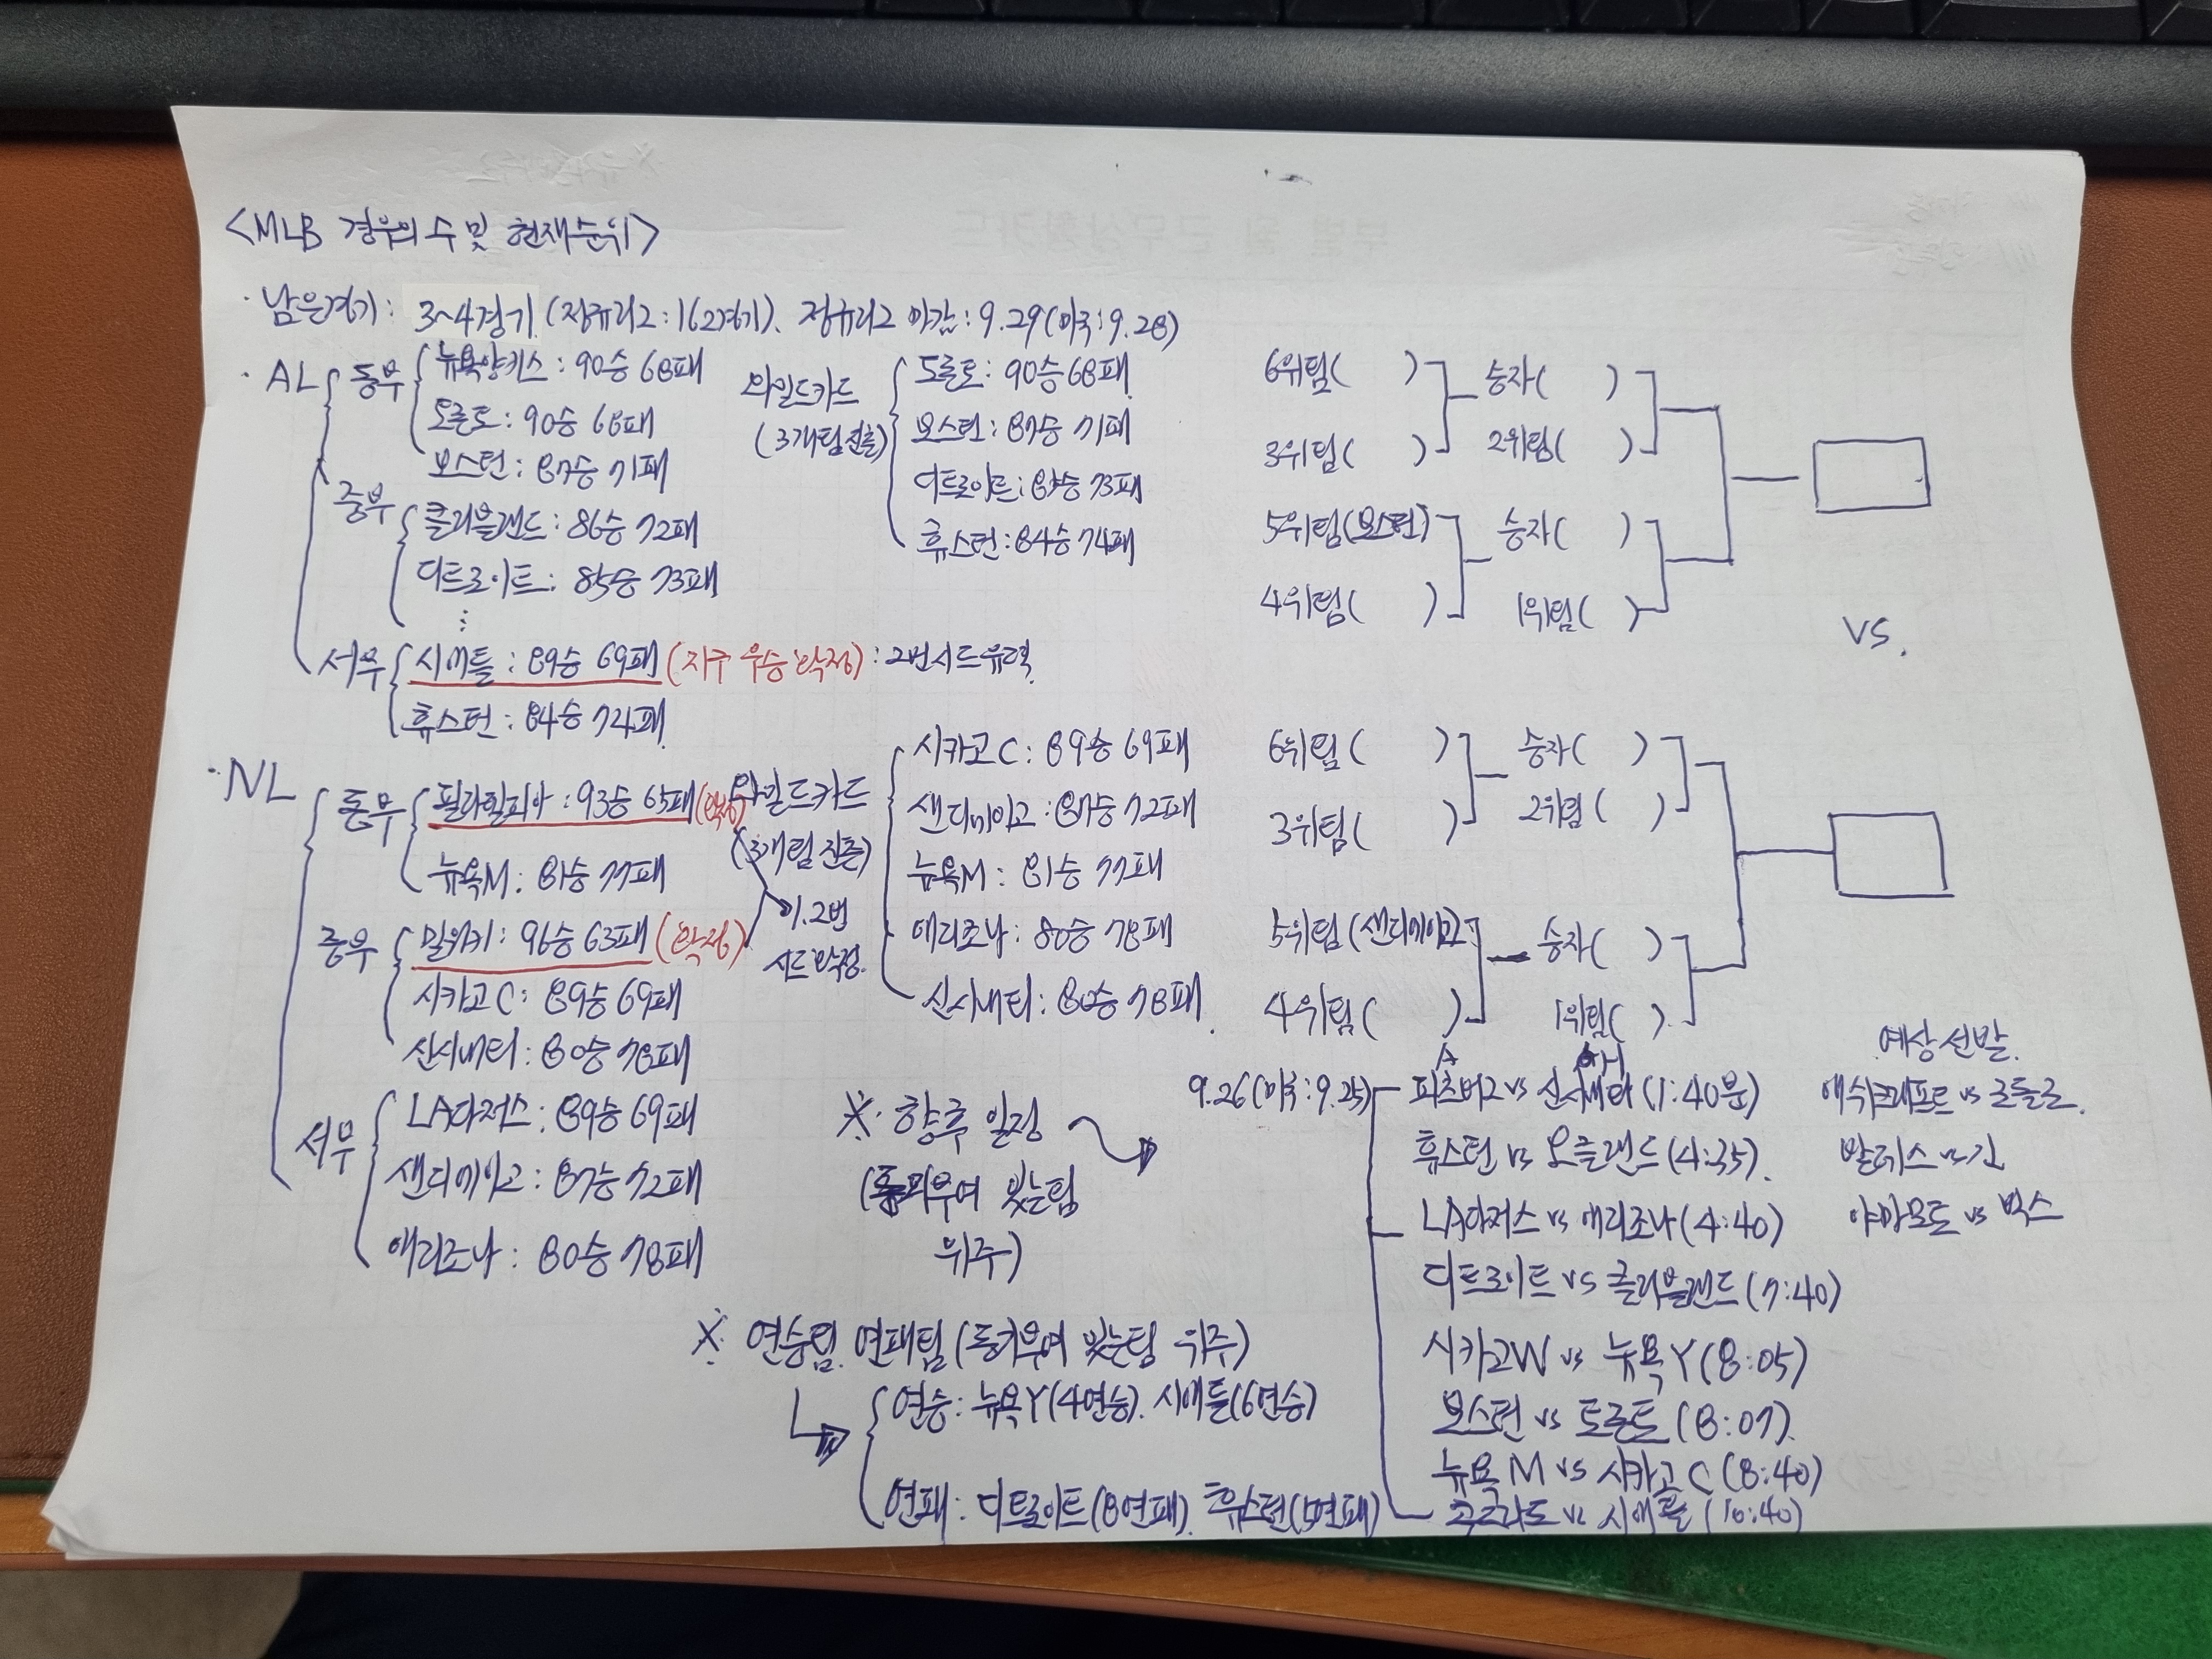 <MLB 경우의 수 및 현재순위>
· 남은경기 : 3~4경기 (정규리그 : 162경기). 정규리그 마감 : 9.29(미국:9.28)
· AL
동부
뉴욕양키스 : 90승 68패
토론토 : 90승 68패
보스턴 : 87승 71패
중부
클리블랜드 : 86승 72패
디트로이트 : 85승 73패
⋮
서부
시애틀 : 89승 69패 (지구 우승 확정) : 2번시드유력.
휴스턴 : 84승 74패
와일드카드
(3개팀 진출)
토론토 : 90승 68패
보스턴 : 87승 71패
디트로이트 : 85승 73패
휴스턴 : 84승 74패
6위팀( )
3위팀( )
승자( )
2위팀( )
5위팀(보스턴)
4위팀( )
승자( )
1위팀( )
VS.
· NL
동부
필라델피아 : 93승 65패 (확정)
뉴욕M : 81승 77패
중부
밀워키 : 96승 63패 (확정)
시카고C : 89승 69패
신시내티 : 80승 78패
서부
LA다저스 : 89승 69패
샌디에이고 : 87승 72패
애리조나 : 80승 78패
와일드카드
(3개팀 진출)
1.2번
시드확정.
시카고C : 89승 69패
샌디에이고 : 87승 72패
뉴욕M : 81승 77패
애리조나 : 80승 78패
신시내티 : 80승 78패.
6위팀 ( )
3위팀( )
승자( )
2위팀( )
5위팀 (샌디에이고)
4위팀( )
승자( )
1위팀( )
※ 향후 일정
위주)
9.26(미국:9.25)
A H
예상선발.
피츠버그 vs 신시내티 (1:40분) 애쉬크래프트 vs 로돌로.
휴스턴 vs 오클랜드 (4:35). 발데스 vs 긴
LA다저스 vs 애리조나 (4:40) 야마모토 vs 벅스
디트로이트 vs 클리블랜드 (7:40)
시카고W vs 뉴욕Y (8:05)
보스턴 vs 토론토 (8:07).
뉴욕M vs 시카고C (8:40)
콜로라도 vs 시애틀 (10:40)
※ 연승팀. 연패팀 (동기부여 있는팀 위주)
연승 : 뉴욕Y(4연승). 시애틀(6연승)
연패 : 디트로이트(8연패). 휴스턴(5연패)